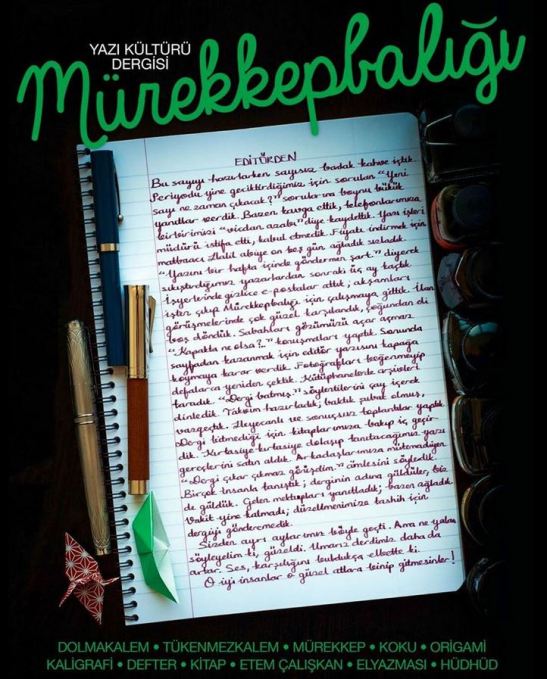 YAZI KÜLTÜRÜ
DERGİSİ
Mürekkepbalığı
EDİTÖRDEN
Bu sayıyı hazırlarken sayısız bardak kahve içtik.
Periyodu yine geciktirdiğimiz için sorulan "Yeni
sayı ne zaman çıkacak?" sorularına boynu bükük
yanıtlar verdik. Bazen kavga ettik, telefonlarımıza
birbirimizi "vicdan azabı" diye kaydettik. Yazı işleri
müdürü istifa etti, kabul etmedik. Fiyatı indirmek için
matbaacı Halil abiye on beş gün ağladık sızladık.
"Yazını bir hafta içinde göndermen şart." diyerek
sıkıştırdığımız yazarlardan sonraki üç ay kaçtık.
İşyerlerinde gizlice e-postalar attık, akşamları
işten çıkıp Mürekkepbalığı için çalışmaya gittik. İlan
görüşmelerinde çok güzel karşılandık, çoğundan eli
boş döndük. Sabahları gözümüzü açar açmaz
"Kapakta ne olsa?" konuşmaları yaptık. Sonunda
sayfadan kazanmak için editör yazısını kapağa
koymaya karar verdik. Fotoğrafları beğenmeyip
defalarca yeniden çektik. Kütüphanelerde arşivleri
taradık. "Dergi batmış." söylentilerini çay içerek
dinledik. Takvim hazırladık; baktık şubat olmuş,
vazgeçtik. Heyecanlı ve sonuçsuz toplantılar yaptık.
Dergi bitmediği için kitaplarımıza bakıp iç geçir-
dik. Kırtasiye kırtasiye dolaşıp tanıtacağımız yazı
gereçlerini satın aldık. Arkadaşlarımıza mütemadiyen
"Dergi çıkar çıkmaz görüşelim" cümlesini söyledik.
Birçok insanla tanıştık; derginin adına güldüler, biz
de güldük. Gelen mektupları yanıtladık; bazen ağladık.
Vakit yine kalmadı; düzeltmenimize tashih için
dergiyi gönderemedik.
Sizden ayrı aylarımız böyle geçti. Ama ne yalan
söyleyelim ki, güzeldi. Umarız derdimiz daha da
artar. Ses, karşılığını buldukça elbette ki.
O iyi insanlar o güzel atlara binip gitmesinler!
DOLMAKALEM • TÜKENMEZKALEM • MÜREKKEP • KOKU • ORİGAMİ
KALİGRAFİ • DEFTER • KİTAP • ETEM ÇALIŞKAN • ELYAZMASI • HÜDHÜD